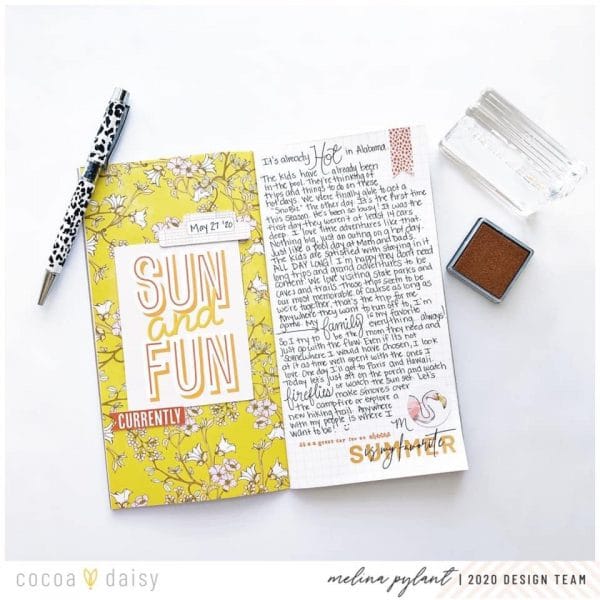 May 27 '20
SUN
and
FUN
CURRENTLY
It's already Hot in Alabama
The kids have already been
in the pool. They're thinking of
trips and things to do on these
hot days. We were finally able to get a
"SnoBiz" the other day. It's the first time
this season. He's been so busy! It was the
first day they weren't at least 14 cars
deep. I love little adventures like that.
Nothing big, just an outing on a hot day.
Just like a pool day at Mom and Dad's.
The kids are satisfied with staying in it
ALL DAY LONG! I'm happy they don't need
long trips and grand adventures to be
content. We love visiting State parks and
caves and trails. Those trips seem to be
our most memorable. Of course as long as
we're together, that's the trip for me.
Anywhere they want to run off to, I'm
game. My family is my favorite
everything always.
So I try to be the mom they need and
just go with the flow. Even if it's not
somewhere I would have chosen, I look
at it as time well spent with the ones I
love. One day I'll get to Paris and Hawaii.
Today let's just sit on the porch and watch
fireflies or watch the sun set. Let's
make s'mores over
the campfire or explore a
new hiking trail. Anywhere
with my people is where I
want to be!
M
it's a great day for an
SUMMER
is my favorite
cocoa daisy
melina pylant | 2020 DESIGN TEAM